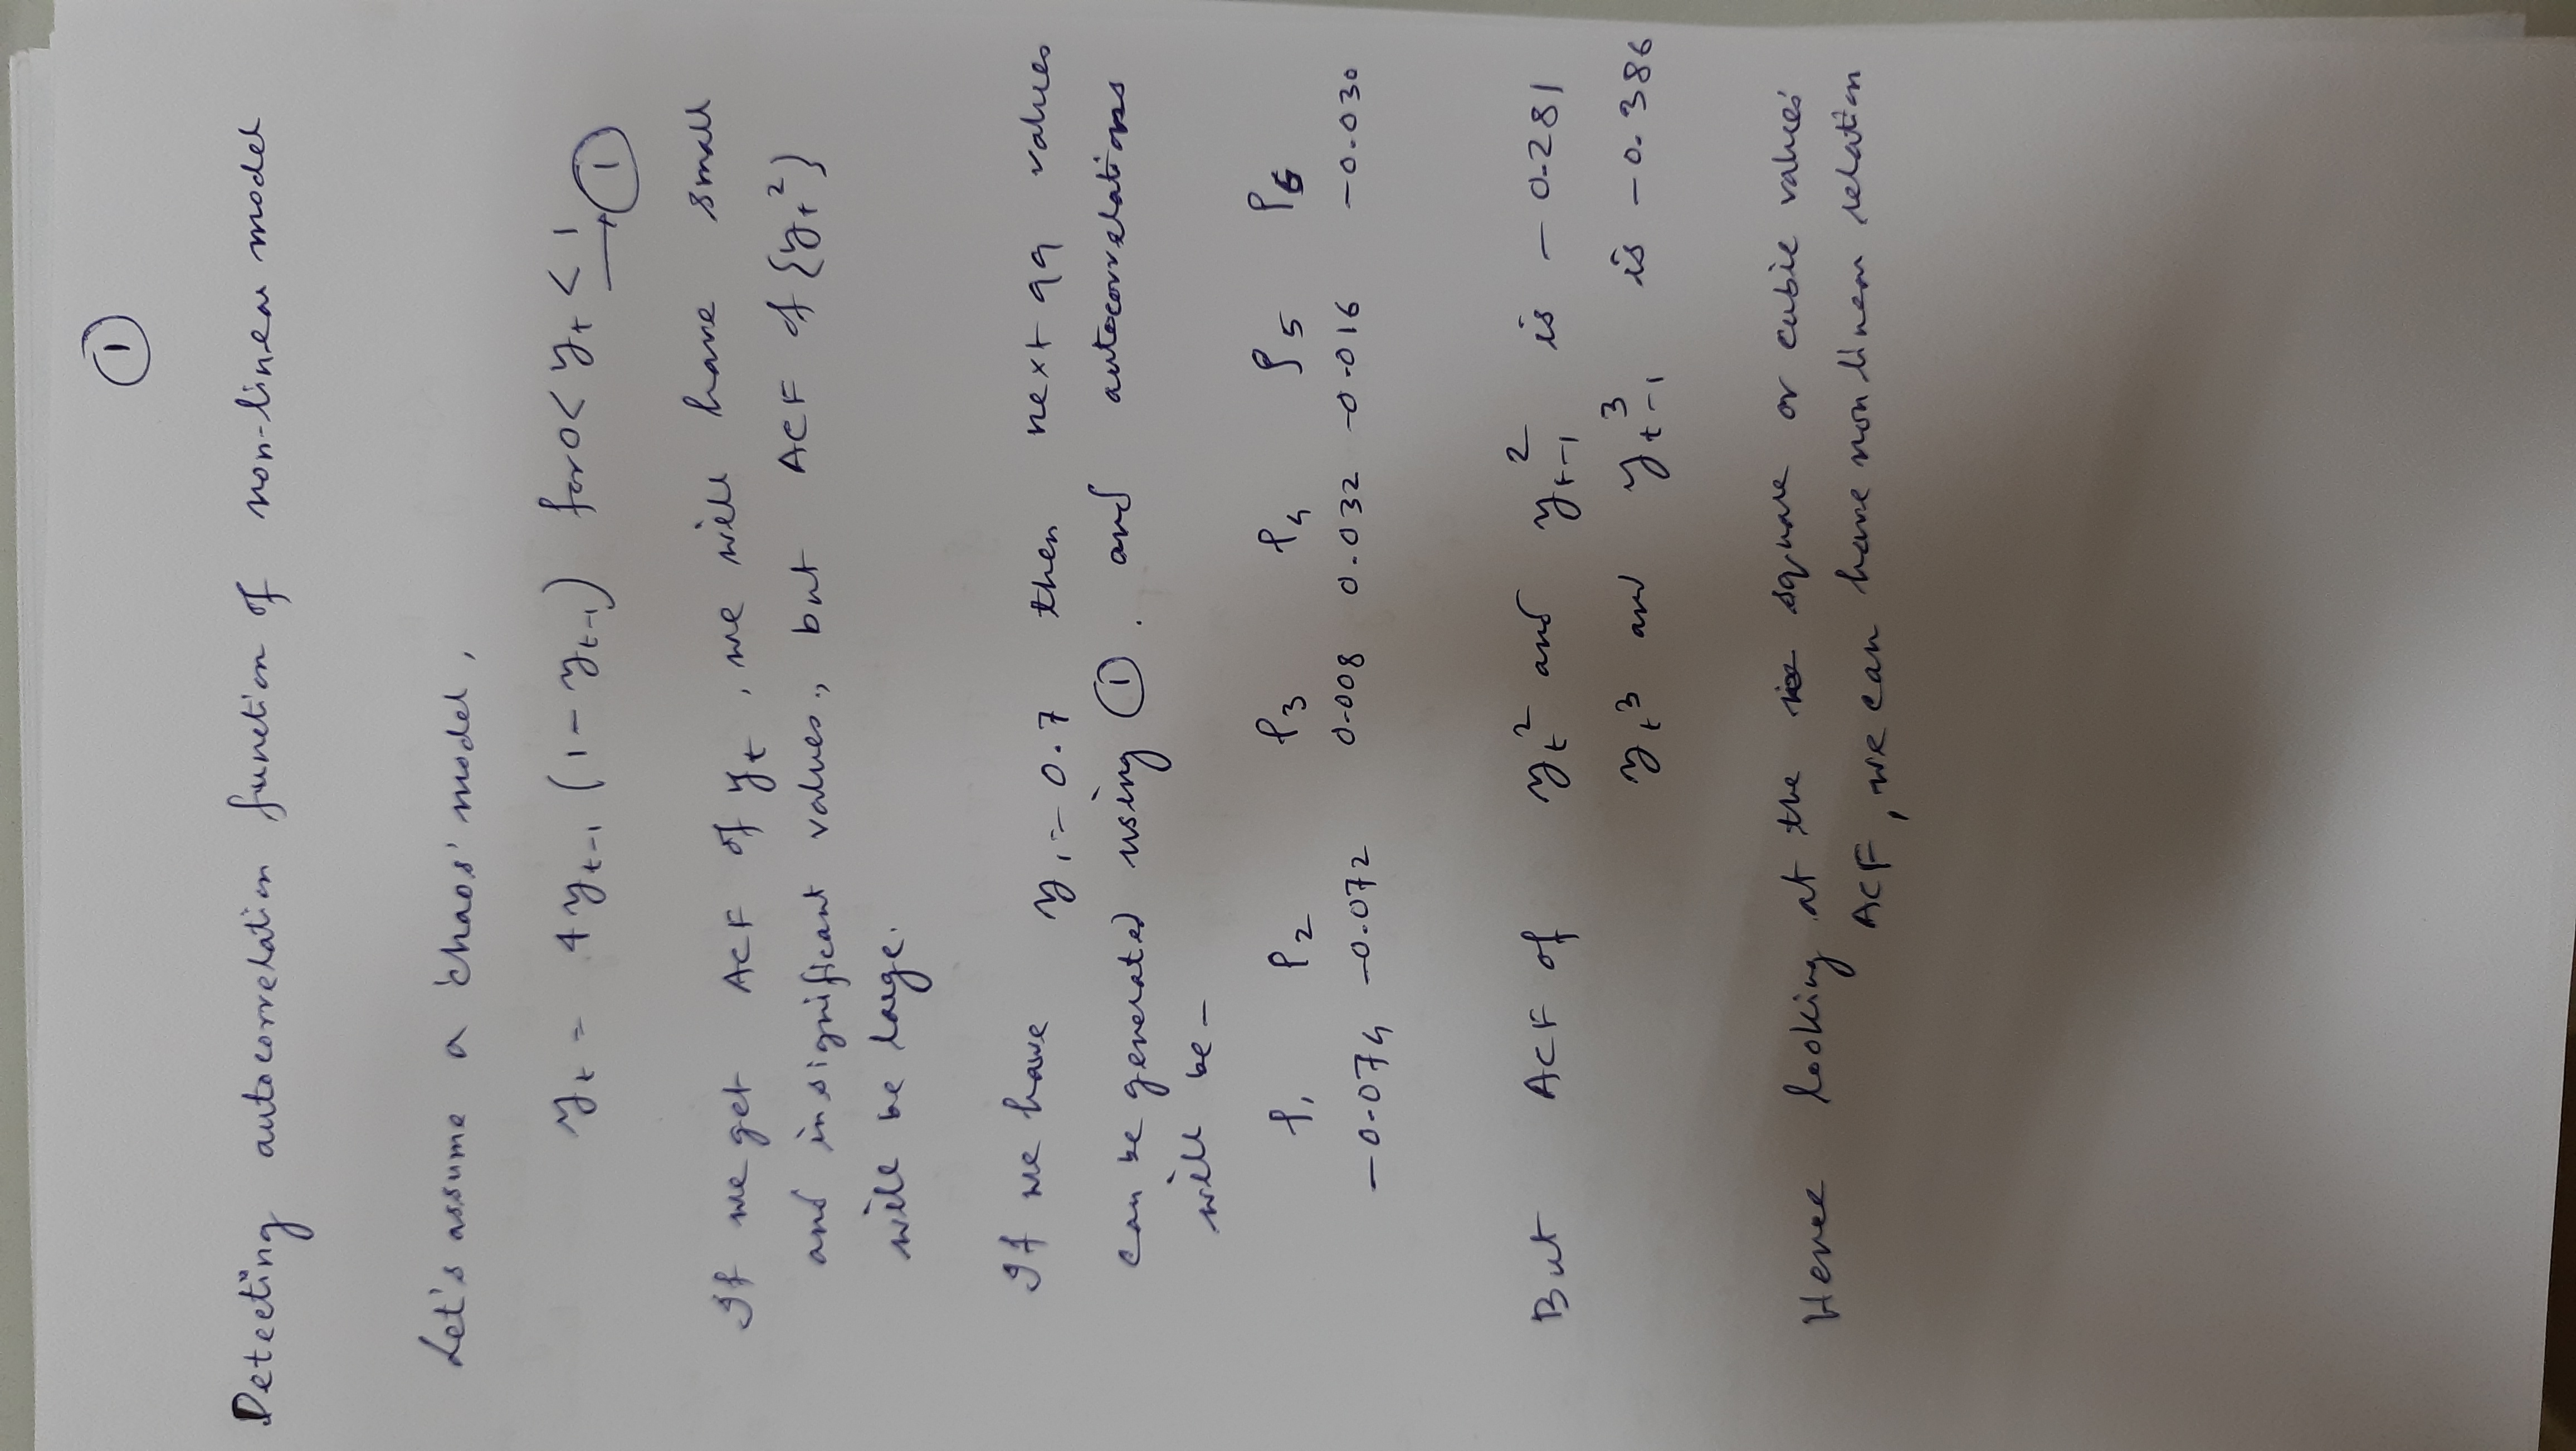 ①
Detecting autocorrelation function of non-linear model
Let's assume a 'chaos' model,
yₜ = 4yₜ₋₁ (1 - yₜ₋₁) for 0 < yₜ < 1 → ①
If we get ACF of yₜ, we will have small
and insignificant values, but ACF of {yₜ²}
will be large.
If we have y₁ = 0.7 then next 99 values
can be generated using ①. and autocorrelations
will be –
ρ₁ ρ₂ ρ₃ ρ₄ ρ₅ ρ₆
-0.074 -0.072 0.008 0.032 -0.016 -0.030
But ACF of yₜ² and yₜ₋₁² is -0.281
yₜ³ and yₜ₋₁³ is -0.386
Hence looking at the square or cubic values'
ACF, we can have non linear relation